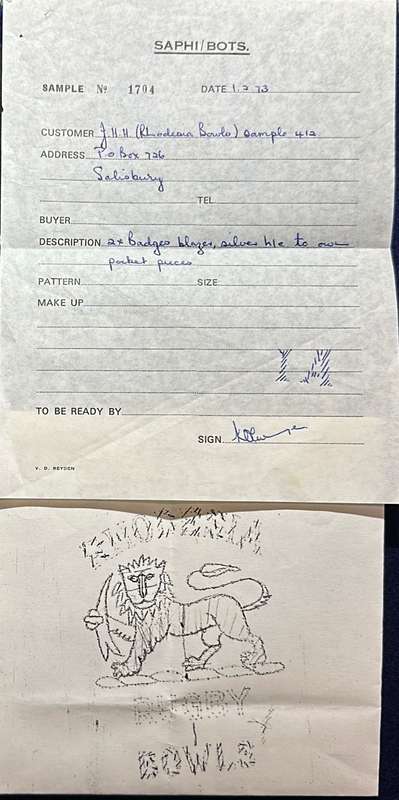 SAPHI/BOTS.
SAMPLE Nº 1704 DATE 1.2 73
CUSTOMER J H H (Rhodesia Bowls) Sample 412
ADDRESS P.O Box 726
Salisbury
TEL
BUYER
DESCRIPTION 2x Badges blazer, silver h/e to own
pocket pieces
PATTERN SIZE
MAKE UP
TO BE READY BY
SIGN
V. D. REYDEN
RHODESIA
BOWLS